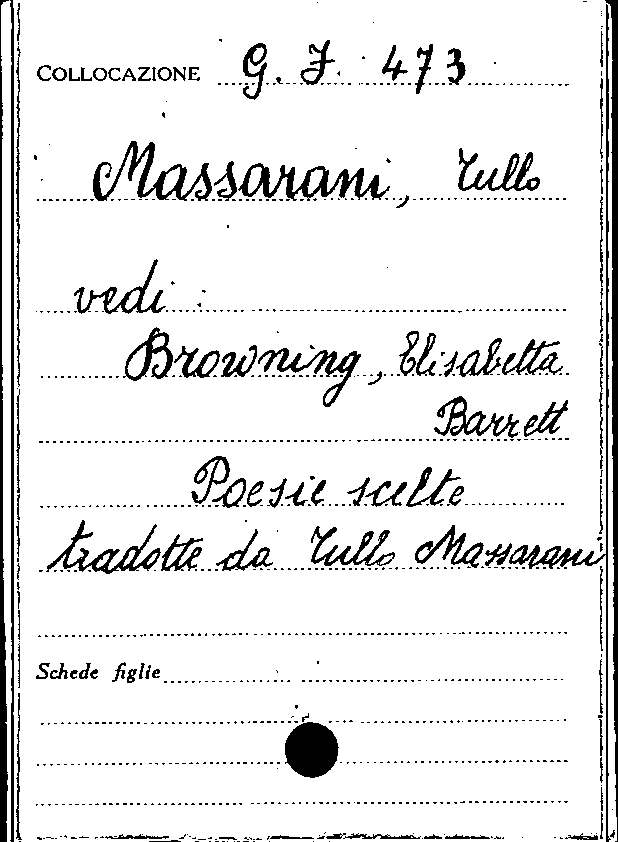 COLLOCAZIONE G. J. 473
Massarani, Tullo
vedi :
Browning, Elisabetta
Barrett
Poesie scelte
tradotte da Tullo Massarani
Schede figlie